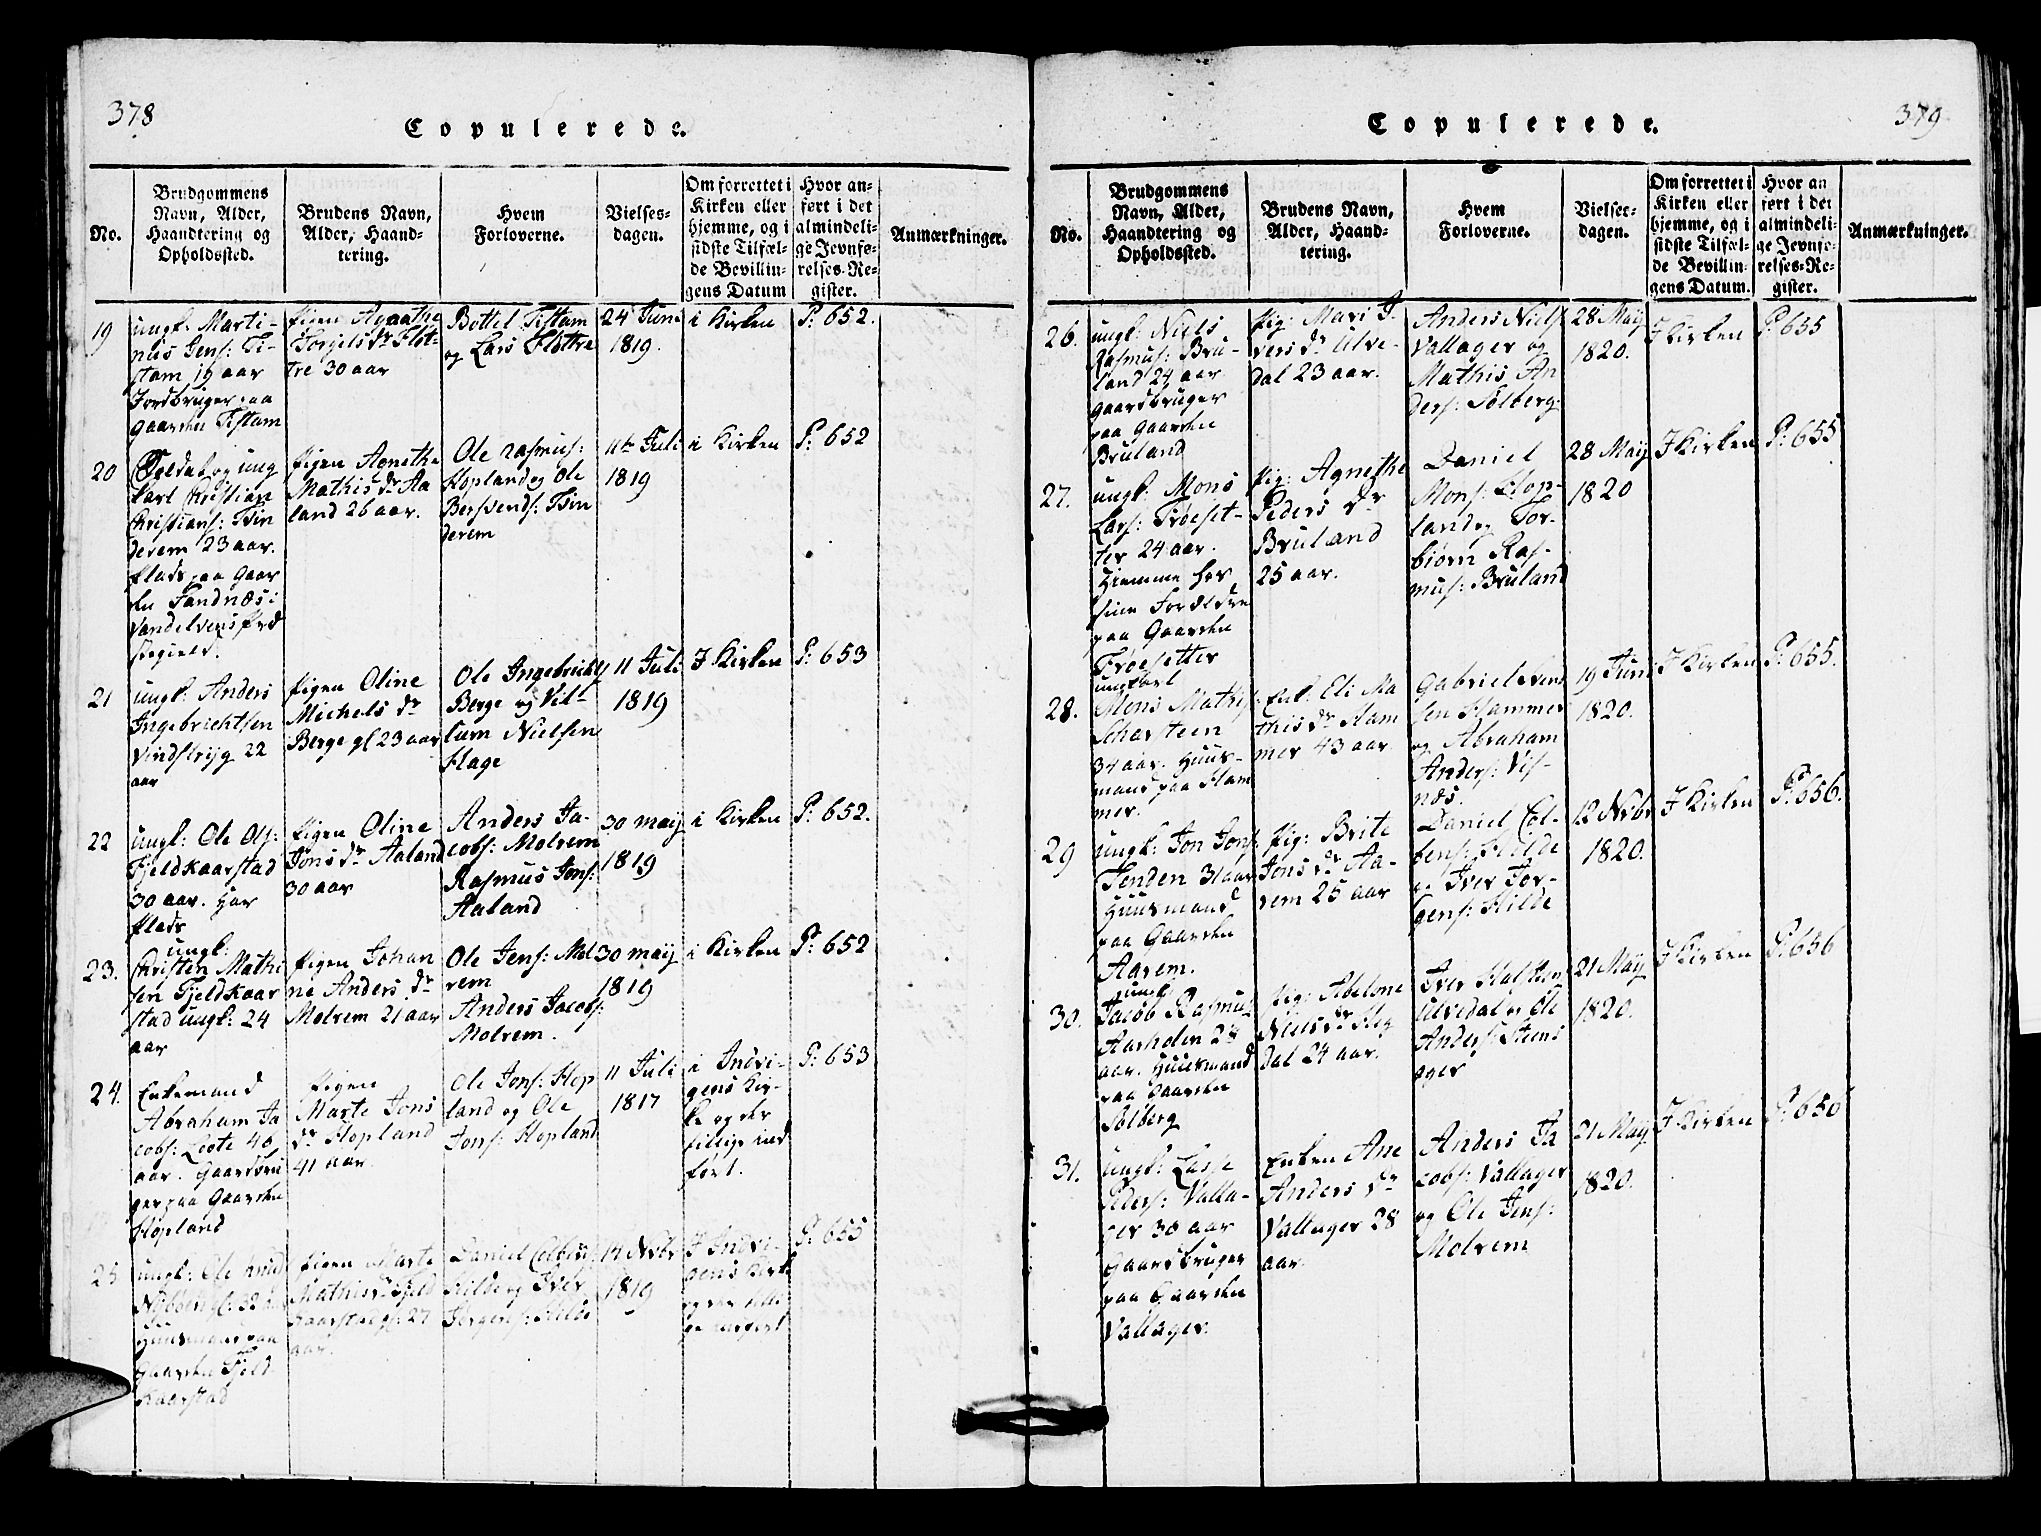 378
Copulerede.
No.
Brudgommens
Navn, Alder,
Haandtering og
Opholdssted.
Brudens Navn,
Alder, Haand-
tering.
Hvem
Forloverne.
Vielses-
dagen.
Om forrettet i
Kirken eller
hjemme, og i
sidste Tilfæl-
de Bevillin-
gens Datum
Hvor an-
ført i det
almindeli-
ge Jevnfø-
relses-Re-
gister.
Anmærkninger.
19
ungk: Marti-
nus Jens: Ti-
stam 19 aar
Jordbruger paa
Gaarden Tistam
Pigen Agnathe
Torgels dr Flot-
tre 30 aar
Bottel Tistam
og Lars Flottre
24 Juni
1819.
i Kirken
P: 652.
20
Soldat og ung
karl Christian
Christians: Tvin
derem 23 aar.
Plads paa Gaar
den Sandnæs i
Vandelvens Præ
stegield.
Pigen Agnethe
Mathis dr Aa
land 26 aar.
Ole Rasmus:
Hopland og Ole
Bersvends: Tvin
derem
11te Juli
1819
i Kirken
P: 652
21
ungk: Anders
Ingebrichtsen
Vindsrijg 22
aar
Pigen Oline
Michels dr
Berge gl 23 aar
Ole Ingebricht
Berge og Vil-
lum Nielsen
Hage
11 Juli
1819
I Kirken
P: 653
22
ungk: Ole Ols:
Fjeldkaarstad
30 aar. Har
Plads
Pigen Oline
Jons dr Aaland
30 aar
Anders Ja-
cobs: Molrem
Rasmus Jons:
Aaland
30 maij
1819
i Kirken
P: 652.
23.
ungk:
Christen Mathi
sen Fjeldkaar
stad ungk: 24
aar
Pigen Johan
ne Anders dr
Molrem 21 aar
Ole Jens: Mol
rem
Anders Jacobs:
Molrem.
30 maij
1819
i Kirken
P: 652
24.
Enkemand
Abraham Ja
cobs: Leote 40
aar. Gaardbru
ger paa Gaarden
Hopland
Pigen
Marte Jons
dr Hopland
41 aar.
Ole Jons: Hop
land og Ole
Jons: Hopland
11 Juli
1817
i Indvi-
gens Kir-
ke og der
tillige ind
ført.
P: 653
25
ungk: Ole Knud
32
Huusmand paa
Gaarden Fjeld
kaarstad
Pigen Marte
Mathis dr Fjeld
kaarstad gl: 27
aar.
Daniel Colbens:
Hilde og Iver
Jørgens: Hilde
14 Nvbr
1819
I Indvi-
gens Kirke
og der tilli
ge indført
P: 655
379
Copulerede.
No.
Brudgommens
Navn, Alder,
Haandtering og
Opholdssted.
Brudens Navn,
Alder, Haand-
tering.
Hvem
Forloverne.
Vielses-
dagen.
Om forrettet i
Kirken eller
hjemme, og i
sidste Tilfæl-
de Bevillin-
gens Datum.
Hvor an
ført i det
almindeli-
ge Jevnfø-
relses-Re-
gister.
Anmærkninger.
26.
ungk: Niels
Rasmus: Bru-
land 24 aar
Gaardbruger
paa Gaarden
Bruland
Pig: Mari I-
vers dr Ulve-
dal 23 aar.
Anders Niels
Vallager og
Mathis An
ders: Solberg
28 Maij
1820.
I Kirken
P: 655
27.
ungk: Mons
Lars: Frøeset-
ter 24 aar.
Hiemme hos
sine Forældre
paa Gaarden
Frøesetter
Pig: Agnethe
Peders dr
Bruland
25 aar.
Daniel
Mons: Hop-
land og Tor-
biørn Ras-
mus: Bruland
28 Maij
1820
I Kirken
P: 655
28.
ungkarl
Mons Mathis
Scharsteen
34 aar. Huus-
mand paa Ham
mer.
Enk: Eli Ma
this dr Ham
mer 43 aar
Gabriel Svend
sen Hammer
og Abraham
Anders: Vis-
næs.
19 Juni
1820.
I Kirken
P: 655.
29
ungk: Jon Jons:
Tenden 31 aar
Huusmand
paa Gaarden
Aarem.
Pig: Brite
Jons dr Aa-
rem 25 aar
Daniel Col-
bens: Hilde
og Iver Jør-
gens: Hilde
12 Nvbr
1820.
I Kirken
P: 656.
30.
ungk
Jacob Rasmus
Aarholen 28
aar. Huusmand
paa Gaarden
Solberg
Pig: Abelone
Niels dr Heg
dal 24 aar.
Iver Halsteen
Ulvedal og Ole
Anders: Steens
ager
21 Maij
1820.
I Kirken
P: 656
31.
ungk: Lasse
Peders: Valla-
ger 30 aar
Gaardbruger
paa Gaarden
Vallager.
Enken Ane
Anders dr
Vallager 28
aar.
Anders Ja
cobs: Vallager
og Ole Jens:
Molrem
21 Maij
1820.
I Kirken
P: 656